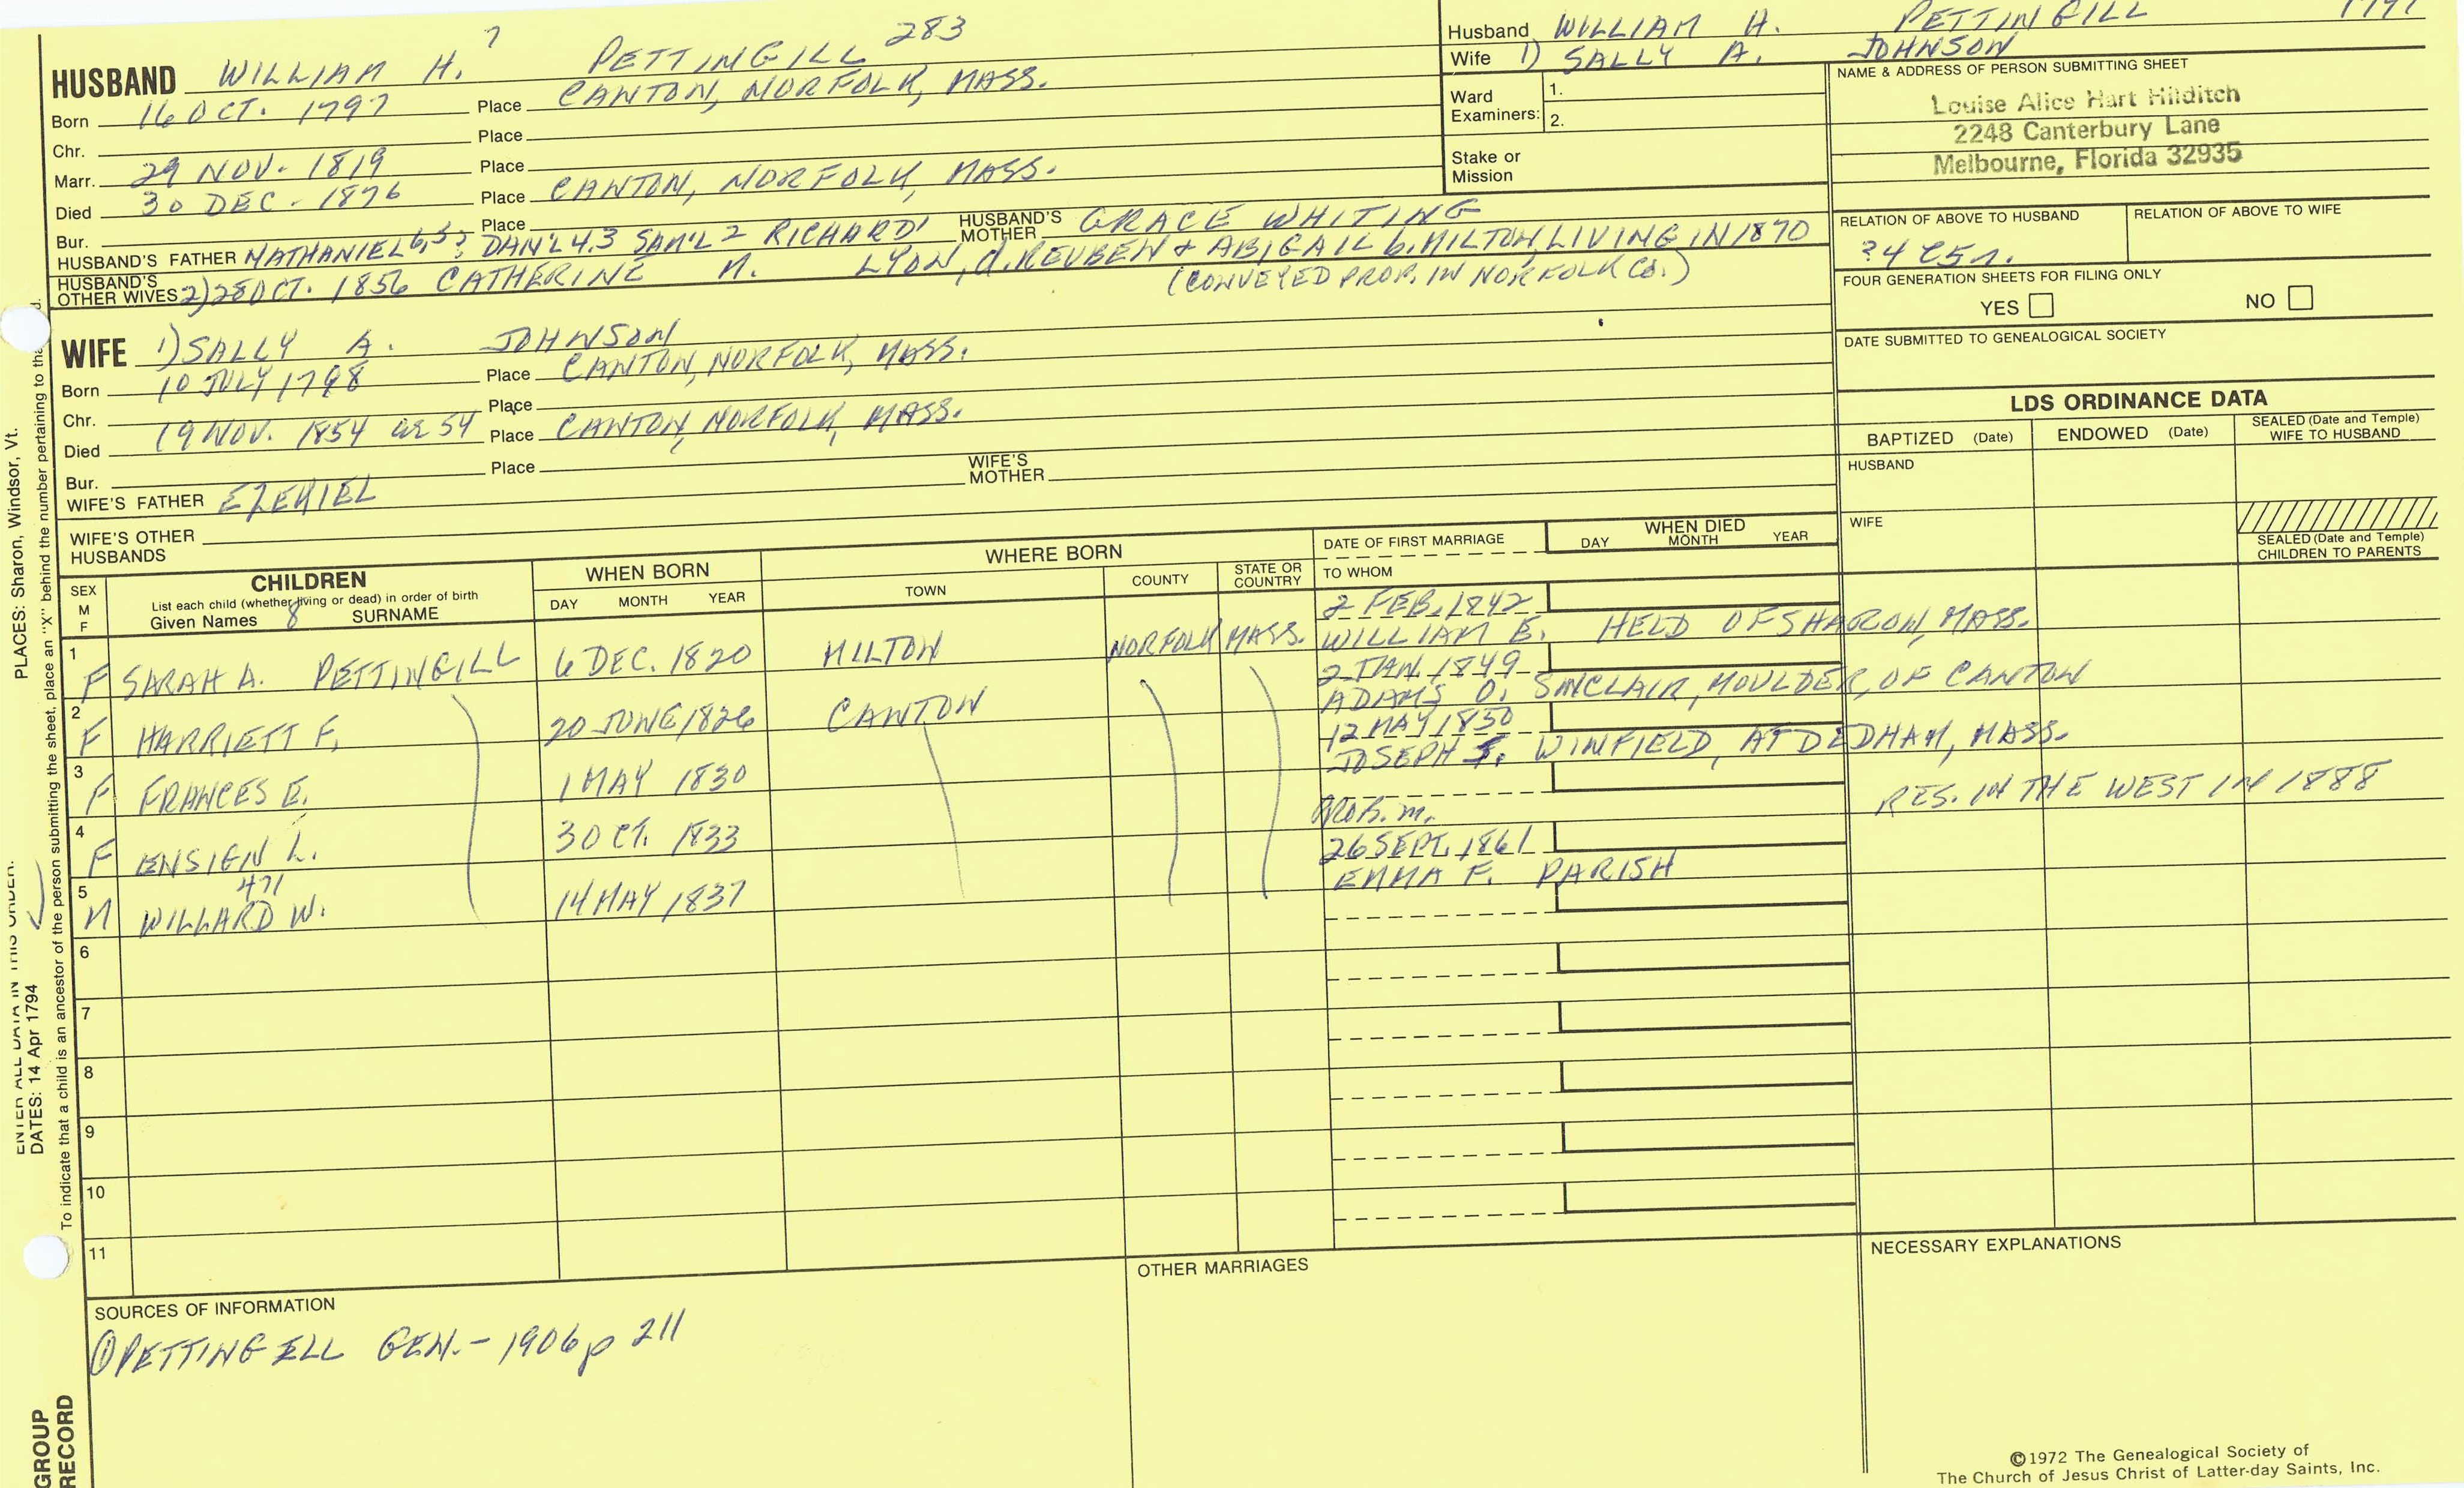 HUSBAND WILLIAM H. 7 PETTINGILL 283
Born 16 OCT. 1797 Place CANTON, NORFOLK, MASS.
Chr. Place
Marr. 29 NOV. 1819 Place
Died 30 DEC. 1876 Place CANTON, NORFOLK, MASS.
Bur. Place
HUSBAND'S FATHER NATHANIEL 6,5; DAN'L 4.3 SAM'L 2 RICHARD1 HUSBAND'S MOTHER GRACE WHITING
HUSBAND'S OTHER WIVES 2) 28 OCT. 1856 CATHERINE M. LYON, d. REUBEN & ABIGAIL b. MILTON, LIVING IN 1870
(CONVEYED PROP. IN NORFOLK CO.)
Husband WILLIAM H. PETTINGILL 1797
Wife 1) SALLY A. JOHNSON
Ward Examiners: 1.
2.
Stake or Mission
NAME & ADDRESS OF PERSON SUBMITTING SHEET
Louise Alice Hart Hilditch
2248 Canterbury Lane
Melbourne, Florida 32935
RELATION OF ABOVE TO HUSBAND RELATION OF ABOVE TO WIFE
FOUR GENERATION SHEETS FOR FILING ONLY
YES NO
DATE SUBMITTED TO GENEALOGICAL SOCIETY
WIFE 1) SALLY A. JOHNSON
Born 10 JULY 1798 Place CANTON, NORFOLK, MASS.
Chr. Place
Died 19 NOV. 1854 ae 54 Place CANTON, NORFOLK, MASS.
Bur. Place
WIFE'S FATHER EZEKIEL WIFE'S MOTHER
WIFE'S OTHER HUSBANDS
LDS ORDINANCE DATA
BAPTIZED (Date) ENDOWED (Date) SEALED (Date and Temple) WIFE TO HUSBAND
HUSBAND
WIFE
SEALED (Date and Temple) CHILDREN TO PARENTS
SEX M F
CHILDREN
List each child (whether living or dead) in order of birth
Given Names 8 SURNAME
WHEN BORN
DAY MONTH YEAR
WHERE BORN
TOWN COUNTY STATE OR COUNTRY
DATE OF FIRST MARRIAGE
TO WHOM
WHEN DIED
DAY MONTH YEAR
2 FEB. 1842
1 F SARAH A. PETTINGILL 6 DEC. 1820 MILTON NORFOLK MASS. WILLIAM E. HELD OF SHARON, MASS.
2 JAN. 1849
2 F HARRIETT F. 20 JUNE 1826 CANTON ADAMS O. SINCLAIR, MOULDER, OF CANTON
12 MAY 1850
3 F FRANCES E. 1 MAY 1830 JOSEPH F. WINFIELD, AT DEDHAM, MASS.
4 F ENSIGN L. 3 OCT. 1833 PROB. m. RES. IN THE WEST IN 1888
26 SEPT. 1861
5 M WILLARD W. 471 14 MAY 1837 EMMA F. PARISH
6
7
8
9
10
11
SOURCES OF INFORMATION
① PETTINGELL GEN. - 1906 p 211
OTHER MARRIAGES
NECESSARY EXPLANATIONS
©1972 The Genealogical Society of
The Church of Jesus Christ of Latter-day Saints, Inc.
PLACES: Sharon, Windsor, Vt.
ENTER ALL DATA IN THIS ORDER:
DATES: 14 Apr 1794
To indicate that a child is an ancestor of the person submitting the sheet, place an "X" behind the number pertaining to tha d.
GROUP
RECORD